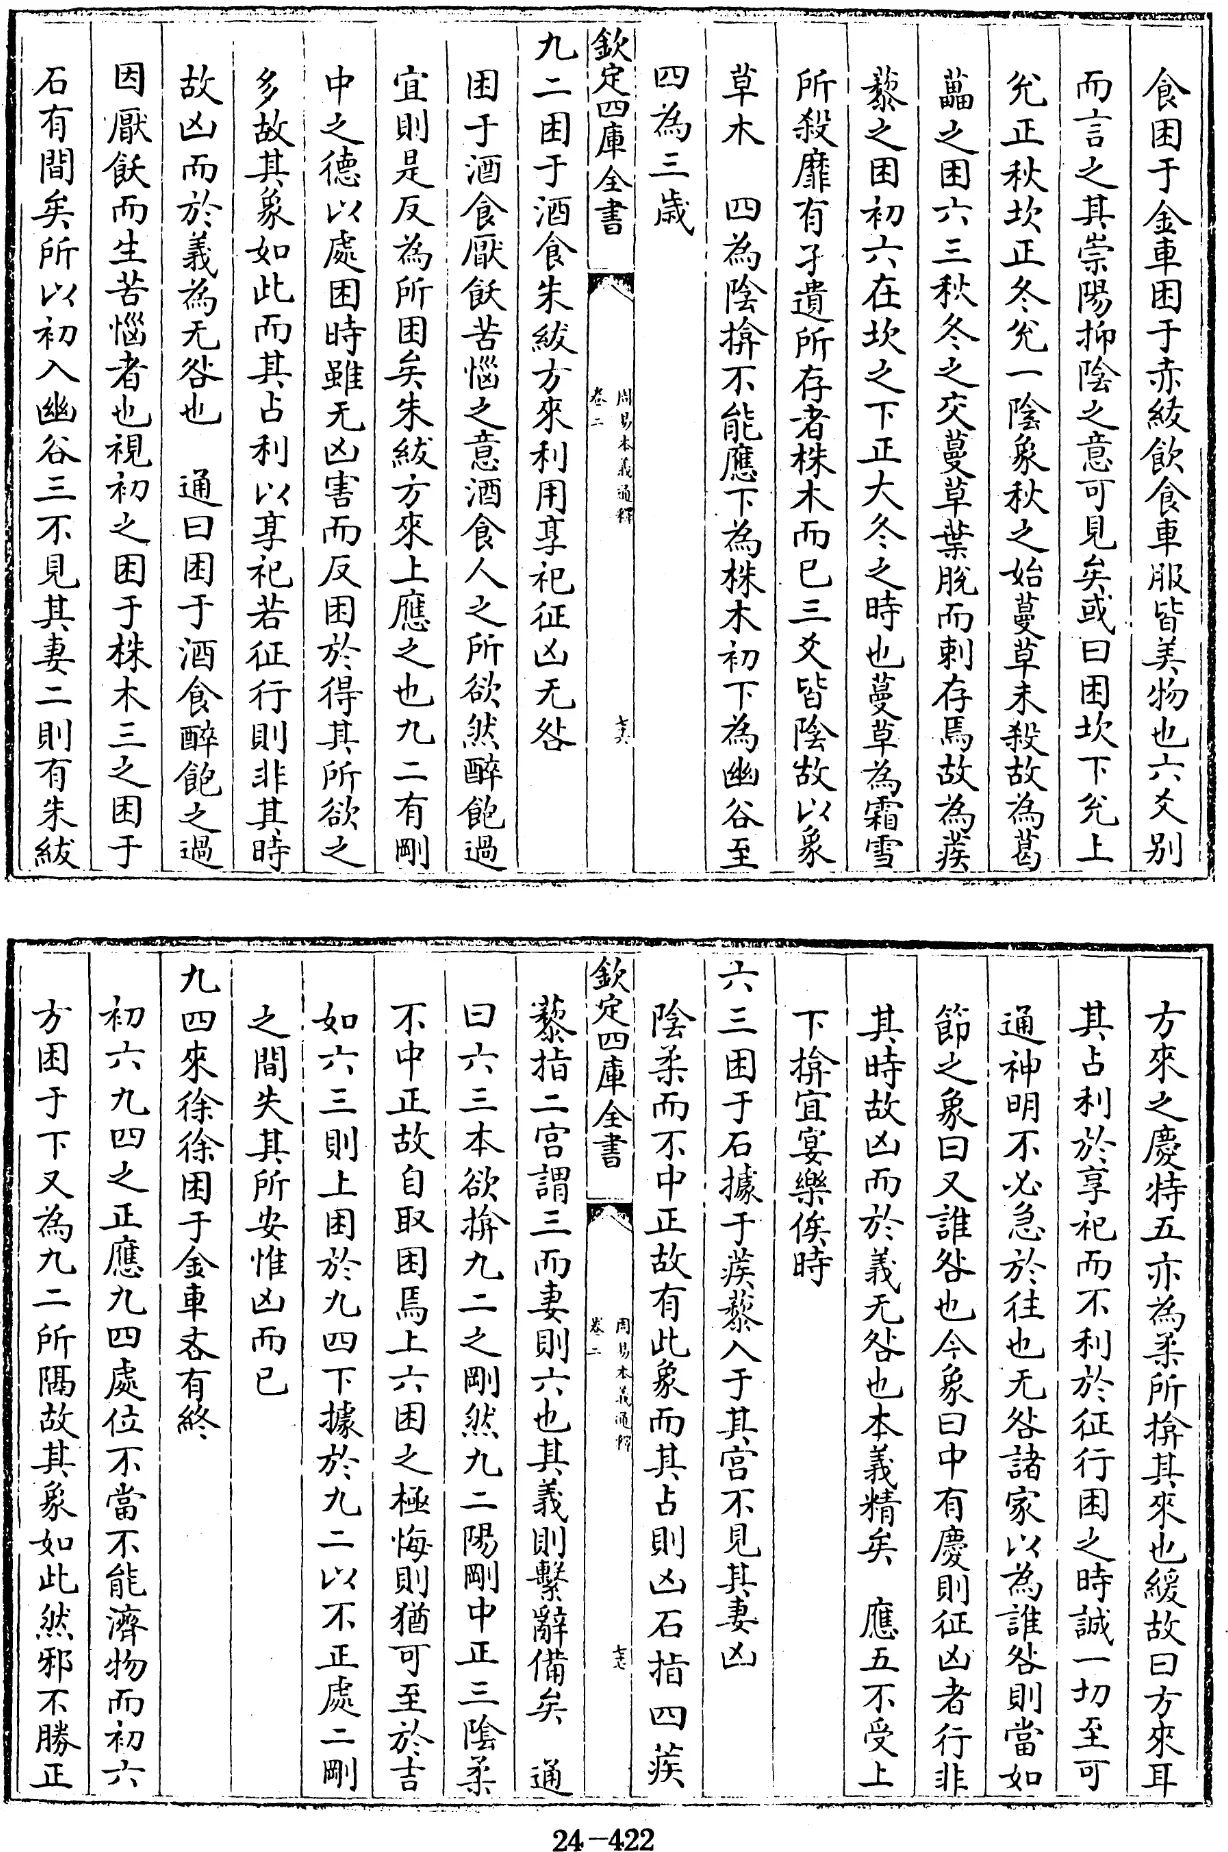 食困于金車困于赤紱飲食車服皆美物也六爻别
而言之其崇陽抑陰之意可見矣或曰困坎下兊上
兊正秋坎正冬兊一陰象秋之始蔓草未殺故為葛
藟之困六三秋冬之交蔓草葉脫而刺存焉故為蒺
藜之困初六在坎之下正大冬之時也蔓草為霜雪
所殺靡有孑遺所存者株木而已三爻皆陰故以象
草木　四為陰揜不能應下為株木初下為幽谷至
四為三歳
欽定四庫全書
周易本義通釋
卷二
七六
九二困于酒食朱紱方來利用享祀征凶无咎
困于酒食厭飫苦惱之意酒食人之所欲然醉飽過
宜則是反為所困矣朱紱方來上應之也九二有剛
中之德以處困時雖无凶害而反困於得其所欲之
多故其象如此而其占利以享祀若征行則非其時
故凶而於義為无咎也　通曰困于酒食醉飽之過
因厭飫而生苦惱者也視初之困于株木三之困于
石有間矣所以初入幽谷三不見其妻二則有朱紱
方來之慶特五亦為柔所揜其來也緩故曰方來耳
其占利於享祀而不利於征行困之時誠一切至可
通神明不必急於往也无咎諸家以為誰咎則當如
節之象曰又誰咎也今象曰中有慶則征凶者行非
其時故凶而於義无咎也本義精矣　應五不受上
下揜宜宴樂俟時
六三困于石據于蒺藜入于其宫不見其妻凶
陰柔而不中正故有此象而其占則凶石指四蒺
欽定四庫全書
周易本義通釋
卷二
七七
藜指二宫謂三而妻則六也其義則繫辭備矣　通
曰六三本欲揜九二之剛然九二陽剛中正三陰柔
不中正故自取困焉上六困之極悔則猶可至於吉
如六三則上困於九四下據於九二以不正處二剛
之間失其所安惟凶而已
九四來徐徐困于金車吝有終
初六九四之正應九四處位不當不能濟物而初六
方困于下又為九二所隔故其象如此然邪不勝正
24-422